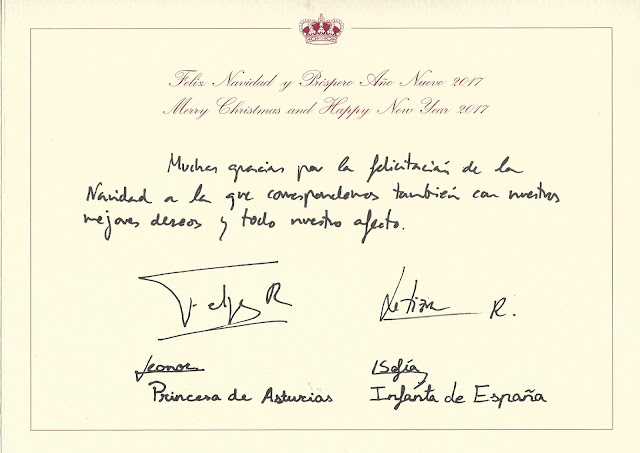 Feliz Navidad y Próspero Año Nuevo 2017
Merry Christmas and Happy New Year 2017
Muchas gracias por la felicitación de la
Navidad a la que correspondemos también con nuestros
mejores deseos y todo nuestro afecto.
Felipe R Letizia R.
Leonor Sofía
Princesa de Asturias Infanta de España